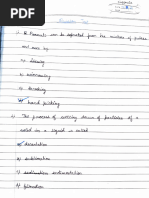 1. Peanuts can be separated from the mixture of pulses
and rice by
a) sieving
b) winnowing
c) threshing
d) hand picking
2) The process of settling down of particles of a
solid in a liquid is called
b) sublimation
c) sedimentation
d) filtration